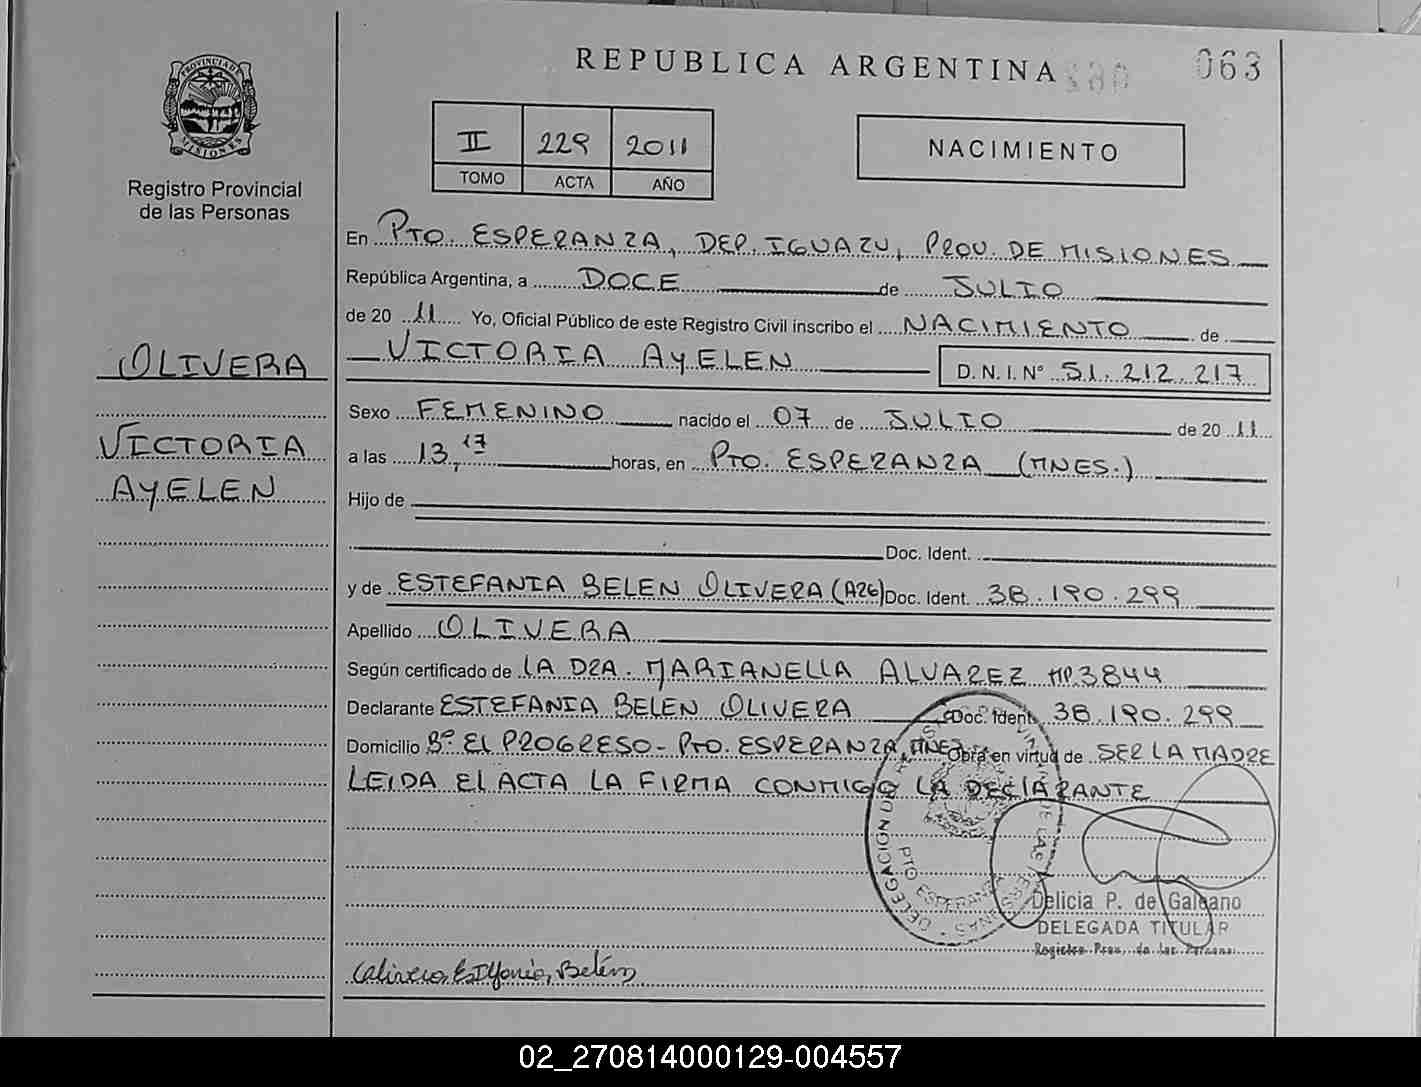 REPUBLICA ARGENTINA
063
PROVINCIA DE
MISIONES
Registro Provincial
de las Personas
II 229 2011
TOMO ACTA AÑO
NACIMIENTO
En PTO. ESPERANZA, DEP. IGUAZU, PROV. DE MISIONES
República Argentina, a DOCE de JULIO
de 20 11 Yo, Oficial Público de este Registro Civil inscribo el NACIMIENTO de
VICTORIA AYELEN D. N. I. N° 51.212.217
OLIVERA
VICTORIA
AYELEN
Sexo FEMENINO nacido el 07 de JULIO de 20 11
a las 13,17 horas, en PTO. ESPERANZA (MNES.)
Hijo de
Doc. Ident.
y de ESTEFANIA BELEN OLIVERA (A26) Doc. Ident. 38.190.299
Apellido OLIVERA
Según certificado de LA DRA. MARIANELLA ALVAREZ MP.3844
Declarante ESTEFANIA BELEN OLIVERA Doc. Ident. 38.190.299
Domicilio B° EL PROGRESO - PTO. ESPERANZA, MNES Obra en virtud de SER LA MADRE
LEIDA EL ACTA LA FIRMA CONMIGO LA DECLARANTE
DELEGACION
PTO ESPERANZA
Delicia P. de Galeano
DELEGADA TITULAR
Registro Prov. de las Personas
Olivera, Estefania, Belén
02_270814000129-004557